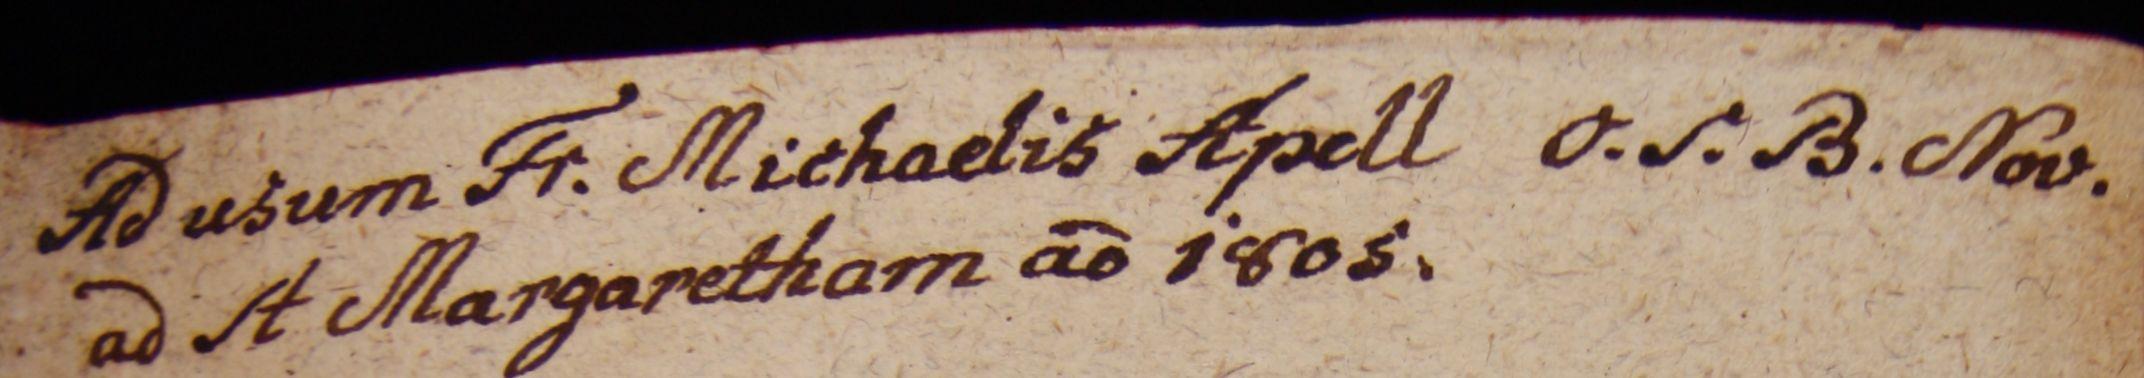 Ad usum Fr. Michaelis Apell O. S. B. Nov.
ad St Margaretham aō 1805.